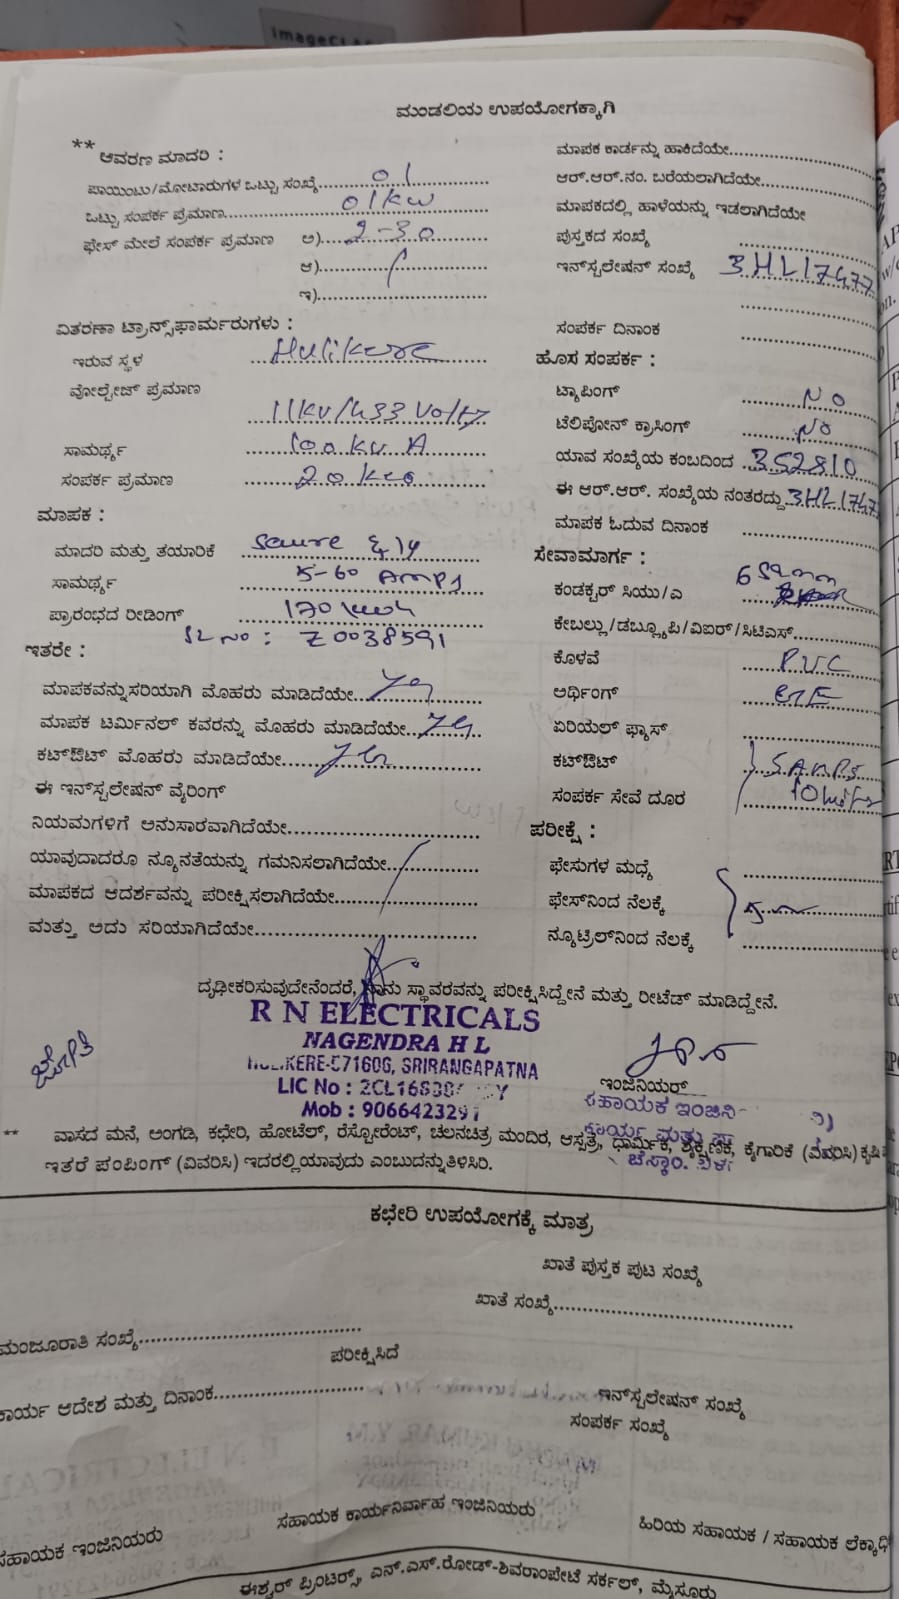 ImageCLA
ಮಂಡಲಿಯ ಉಪಯೋಗಕ್ಕಾಗಿ
** ಆವರಣ ಮಾದರಿ :
ಪಾಯಿಂಟು/ಮೋಟಾರುಗಳ ಒಟ್ಟು ಸಂಖ್ಯೆ 01
ಒಟ್ಟು ಸಂಪರ್ಕ ಪ್ರಮಾಣ 01kw
ಫೇಸ್ ಮೇಲೆ ಸಂಪರ್ಕ ಪ್ರಮಾಣ ಅ) 2-30
ಆ)
ಇ)
ವಿತರಣಾ ಟ್ರಾನ್ಸ್‌ಫಾರ್ಮರುಗಳು :
ಇರುವ ಸ್ಥಳ Hulikere
ವೋಲ್ಟೇಜ್ ಪ್ರಮಾಣ
11kv/433 Volts
ಸಾಮರ್ಥ್ಯ 100 kv A
ಸಂಪರ್ಕ ಪ್ರಮಾಣ 20 kw
ಮಾಪಕ :
ಮಾದರಿ ಮತ್ತು ತಯಾರಿಕೆ
ಸಾಮರ್ಥ್ಯ 5-60 AMPS
ಪ್ರಾರಂಭದ ರೀಡಿಂಗ್ 170 kwh
SL NO : Z0038591
ಇತರೇ :
ಮಾಪಕವನ್ನು ಸರಿಯಾಗಿ ಮೊಹರು ಮಾಡಿದೆಯೇ yes
ಮಾಪಕ ಟರ್ಮಿನಲ್ ಕವರನ್ನು ಮೊಹರು ಮಾಡಿದೆಯೇ yes
ಕಟ್‌ಔಟ್ ಮೊಹರು ಮಾಡಿದೆಯೇ yes
ಈ ಇನ್‌ಸ್ಟಲೇಷನ್ ವೈರಿಂಗ್
ನಿಯಮಗಳಿಗೆ ಅನುಸಾರವಾಗಿದೆಯೇ
ಯಾವುದಾದರೂ ನ್ಯೂನತೆಯನ್ನು ಗಮನಿಸಲಾಗಿದೆಯೇ
ಮಾಪಕದ ಆದರ್ಶವನ್ನು ಪರೀಕ್ಷಿಸಲಾಗಿದೆಯೇ
ಮತ್ತು ಅದು ಸರಿಯಾಗಿದೆಯೇ
ಮಾಪಕ ಕಾರ್ಡನ್ನು ಹಾಕಿದೆಯೇ
ಆರ್.ಆರ್.ನಂ. ಬರೆಯಲಾಗಿದೆಯೇ
ಮಾಪಕದಲ್ಲಿ ಹಾಳೆಯನ್ನು ಇಡಲಾಗಿದೆಯೇ
ಪುಸ್ತಕದ ಸಂಖ್ಯೆ
ಇನ್‌ಸ್ಟಲೇಷನ್ ಸಂಖ್ಯೆ 3HL17477
ಸಂಪರ್ಕ ದಿನಾಂಕ
ಹೊಸ ಸಂಪರ್ಕ :
ಟ್ಯಾಪಿಂಗ್ NO
ಟೆಲಿಫೋನ್ ಕ್ರಾಸಿಂಗ್ NO
ಯಾವ ಸಂಖ್ಯೆಯ ಕಂಬದಿಂದ 352810
ಈ ಆರ್.ಆರ್. ಸಂಖ್ಯೆಯ ನಂತರದ್ದು 3HL1747
ಮಾಪಕ ಓದುವ ದಿನಾಂಕ
ಸೇವಾಮಾರ್ಗ :
ಕಂಡಕ್ಟರ್ ಸಿಯು/ಎ 6 SQmm
ಕೇಬಲ್ಲು/ಡಬ್ಲ್ಯೂಪಿ/ವಿಐರ್/ಸಿಟಿಎಸ್
ಕೊಳವೆ PVC
ಅರ್ಥಿಂಗ್
ಏರಿಯಲ್ ಫ್ಯೂಸ್
ಕಟ್‌ಔಟ್ 5 AMPS
ಸಂಪರ್ಕ ಸೇವೆ ದೂರ
ಪರೀಕ್ಷೆ :
ಫೇಸುಗಳ ಮಧ್ಯೆ
ಫೇಸ್‌ನಿಂದ ನೆಲಕ್ಕೆ
ನ್ಯೂಟ್ರಲ್‌ನಿಂದ ನೆಲಕ್ಕೆ
ದೃಢೀಕರಿಸುವುದೇನೆಂದರೆ, ನಾನು ಸ್ಥಾವರವನ್ನು ಪರೀಕ್ಷಿಸಿದ್ದೇನೆ ಮತ್ತು ರೀಟೆಡ್ ಮಾಡಿದ್ದೇನೆ.
R N ELECTRICALS
NAGENDRA H L
HULIKERE-571606, SRIRANGAPATNA
LIC No :
Mob : 9066423291
ಜ್ಯೋತಿ
ಇಂಜಿನಿಯರ್
ಸಹಾಯಕ ಇಂಜಿನಿ
** ವಾಸದ ಮನೆ, ಅಂಗಡಿ, ಕಛೇರಿ, ಹೋಟೆಲ್, ರೆಸ್ಟೋರೆಂಟ್, ಚಲನಚಿತ್ರ ಮಂದಿರ, ಆಸ್ಪತ್ರೆ, ಧಾರ್ಮಿಕ, ಶೈಕ್ಷಣಿಕ, ಕೈಗಾರಿಕೆ (ವಿವರಿಸಿ) ಕೃಷಿ
ಇತರೆ ಪಂಪಿಂಗ್ (ವಿವರಿಸಿ) ಇದರಲ್ಲಿ ಯಾವುದು ಎಂಬುದನ್ನು ತಿಳಿಸಿರಿ.
ಕಛೇರಿ ಉಪಯೋಗಕ್ಕೆ ಮಾತ್ರ
ಖಾತೆ ಪುಸ್ತಕ ಪುಟ ಸಂಖ್ಯೆ
ಖಾತೆ ಸಂಖ್ಯೆ
ಮಂಜೂರಾತಿ ಸಂಖ್ಯೆ
ಪರೀಕ್ಷಿಸಿದೆ
ಕಾರ್ಯ ಆದೇಶ ಮತ್ತು ದಿನಾಂಕ
ಇನ್‌ಸ್ಟಲೇಷನ್ ಸಂಖ್ಯೆ
ಸಂಪರ್ಕ ಸಂಖ್ಯೆ
ಸಹಾಯಕ ಇಂಜಿನಿಯರು
ಸಹಾಯಕ ಕಾರ್ಯನಿರ್ವಾಹ ಇಂಜಿನಿಯರು
ಹಿರಿಯ ಸಹಾಯಕ / ಸಹಾಯಕ ಲೆಕ್ಕಾಧಿ
ಈಶ್ವರ್ ಪ್ರಿಂಟರ್ಸ್, ಎನ್.ಎಸ್.ರೋಡ್-ಶಿವರಾಂಪೇಟೆ ಸರ್ಕಲ್, ಮೈಸೂರು